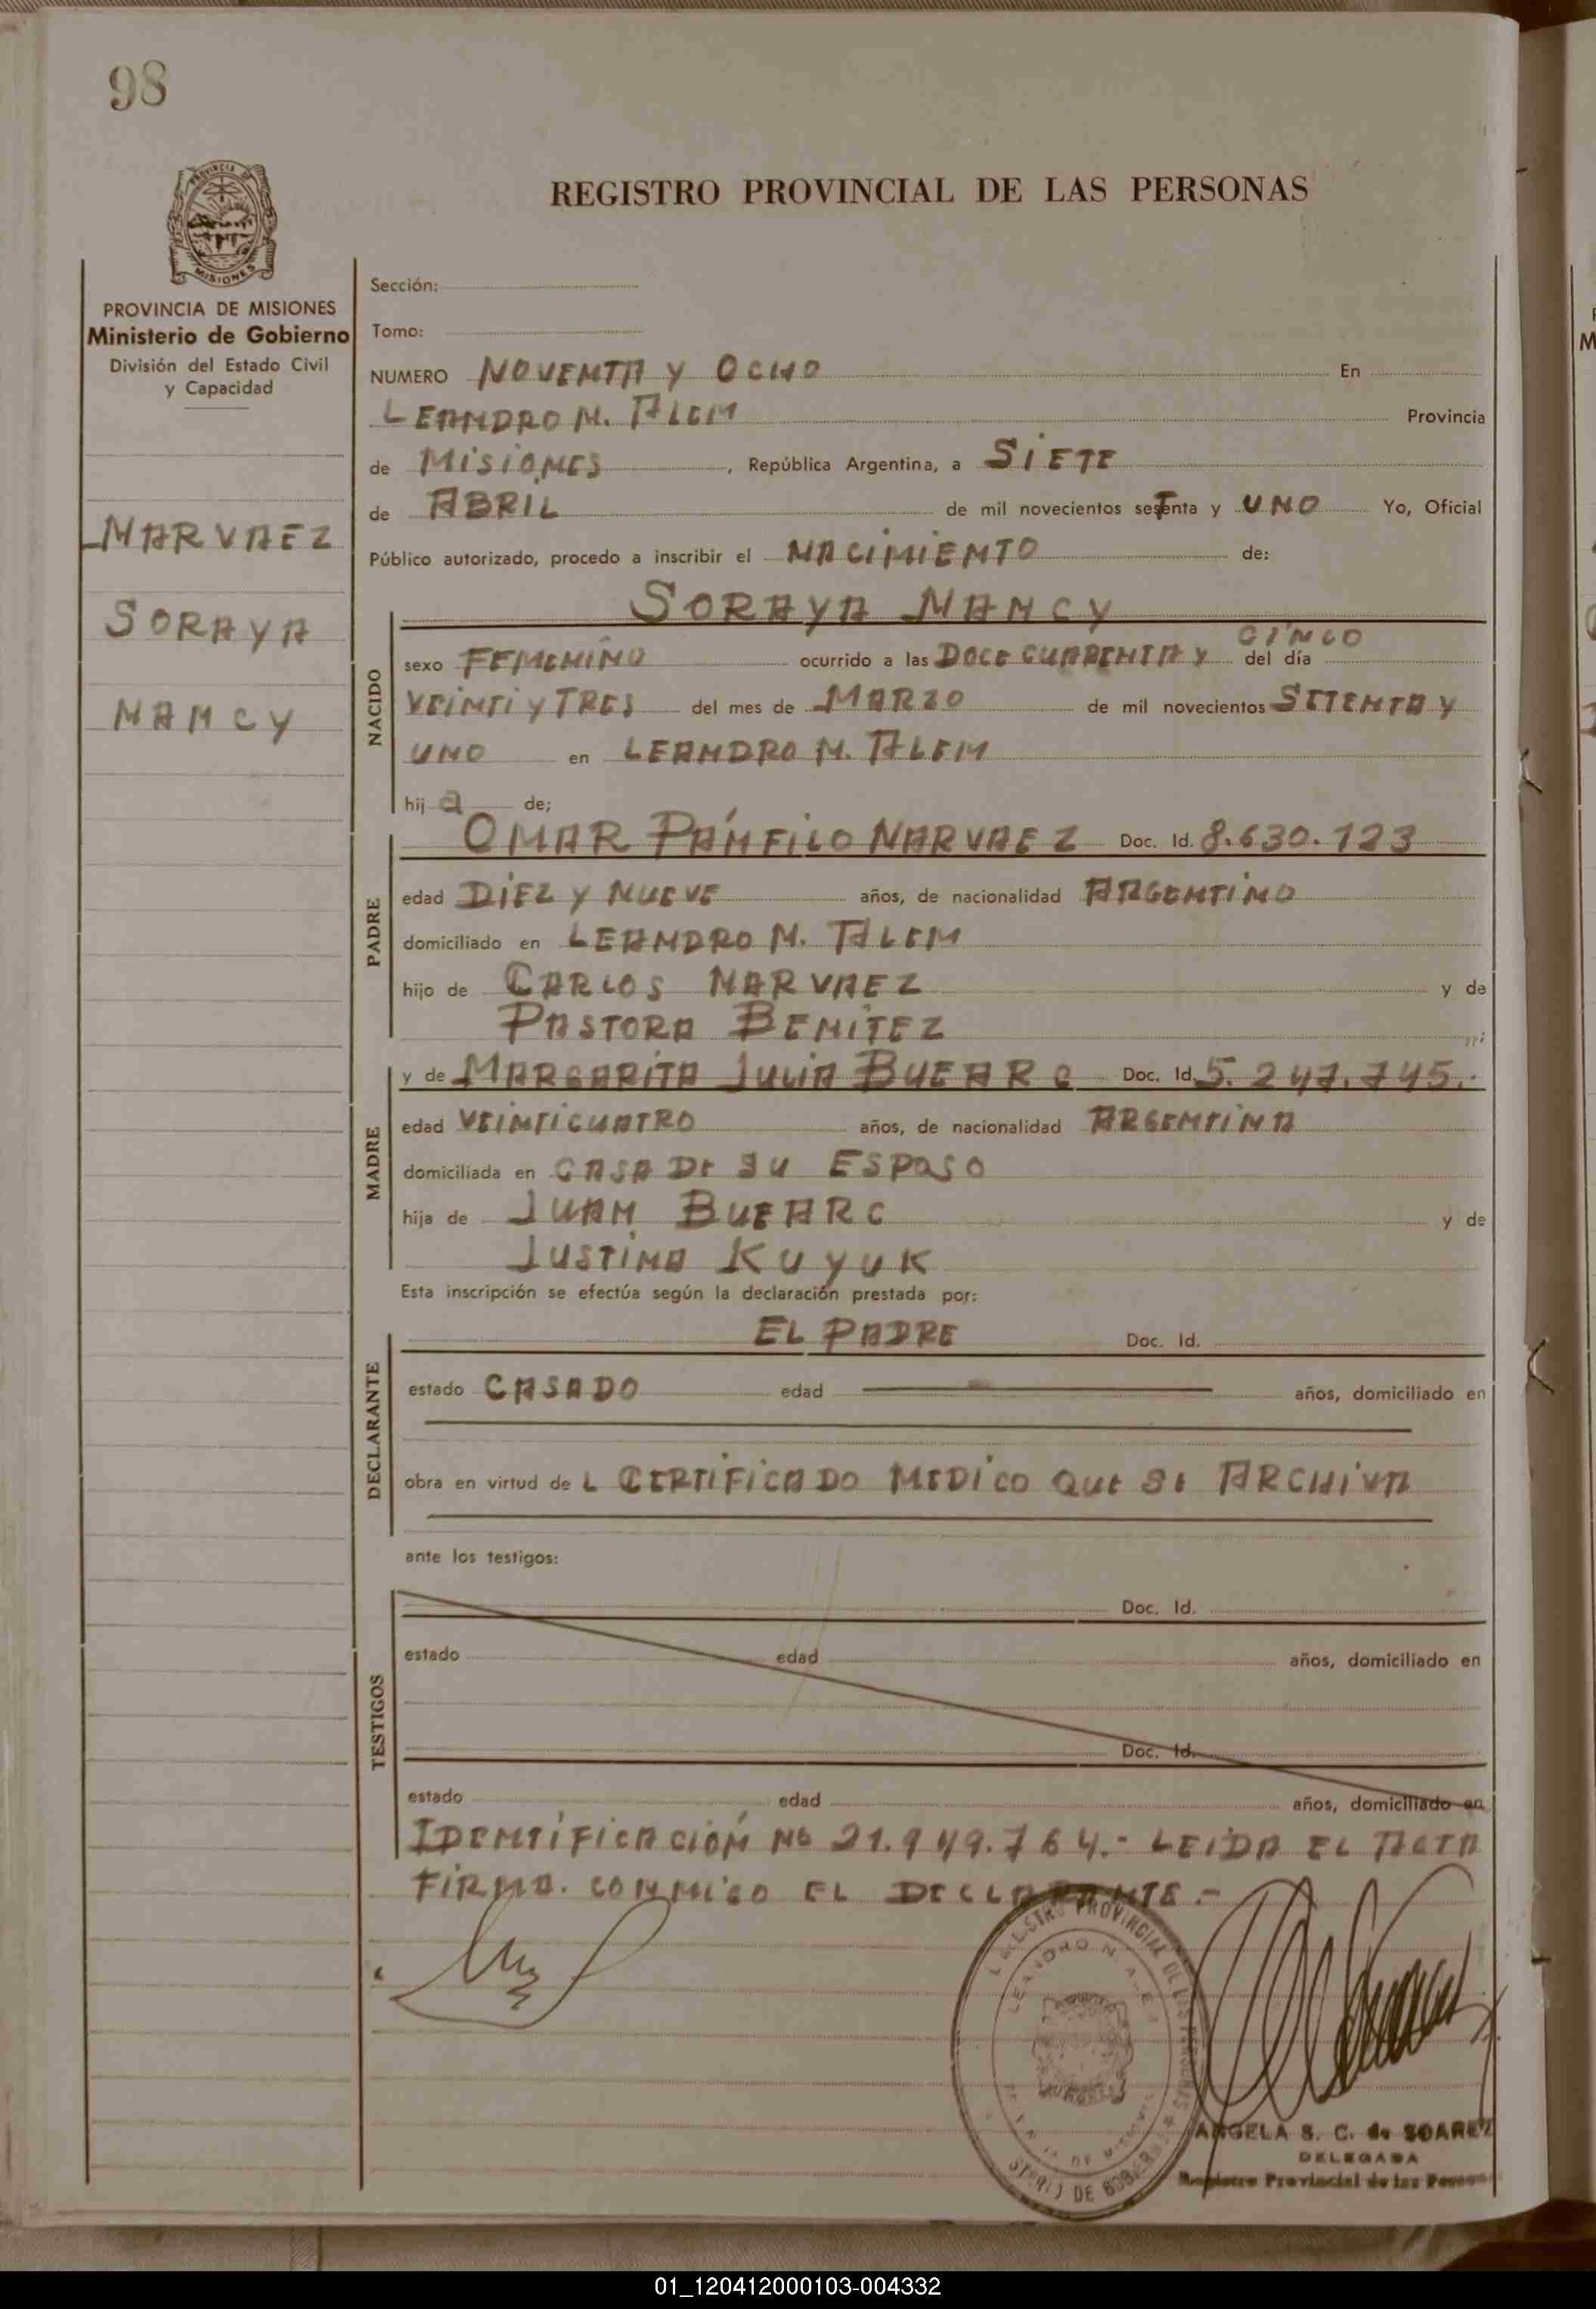 98
REGISTRO PROVINCIAL DE LAS PERSONAS
PROVINCIA DE MISIONES
Ministerio de Gobierno
División del Estado Civil
y Capacidad
NARVAEZ
SORAYA
NANCY
Sección:
Tomo:
NUMERO NOVENTA Y OCHO En
LEANDRO N. ALEM Provincia
de MISIONES, República Argentina, a SIETE
de ABRIL de mil novecientos setenta y UNO Yo, Oficial
Público autorizado, procedo a inscribir el NACIMIENTO de:
SORAYA NANCY
NACIDO
CINCO
sexo FEMENINO ocurrido a las DOCE CUARENTA Y del día
VEINTI Y TRES del mes de MARZO de mil novecientos SETENTA Y
UNO en LEANDRO N. ALEM
hija de;
PADRE
OMAR PÁNFILO NARVAEZ Doc. Id. 8.630.123
edad DIEZ Y NUEVE años, de nacionalidad ARGENTINO
domiciliado en LEANDRO N. ALEM
hijo de CARLOS NARVAEZ y de
PASTORA BENITEZ
MADRE
y de MARGARITA JULIA BUEARC Doc. Id. 5.247.745.-
edad VEINTICUATRO años, de nacionalidad ARGENTINA
domiciliada en CASA DE SU ESPOSO
hija de JUAN BUEARC y de
JUSTINA KUYUK
Esta inscripción se efectúa según la declaración prestada por:
DECLARANTE
EL PADRE Doc. Id.
estado CASADO edad años, domiciliado en
obra en virtud de L CERTIFICADO MEDICO QUE SE ARCHIVA
ante los testigos:
TESTIGOS
Doc. Id.
estado edad años, domiciliado en
Doc. Id.
estado edad años, domiciliado en
IDENTIFICACIÓN Nº 21.949.764.- LEIDA EL ACTA
FIRMA. CONMIGO EL DECLARANTE.-
REGISTRO PROVINCIAL DE LAS PERSONAS
LEANDRO N. ALEM
ANGELA S. C. de SOAREZ
DELEGADA
Registro Provincial de las Personas
01_120412000103-004332